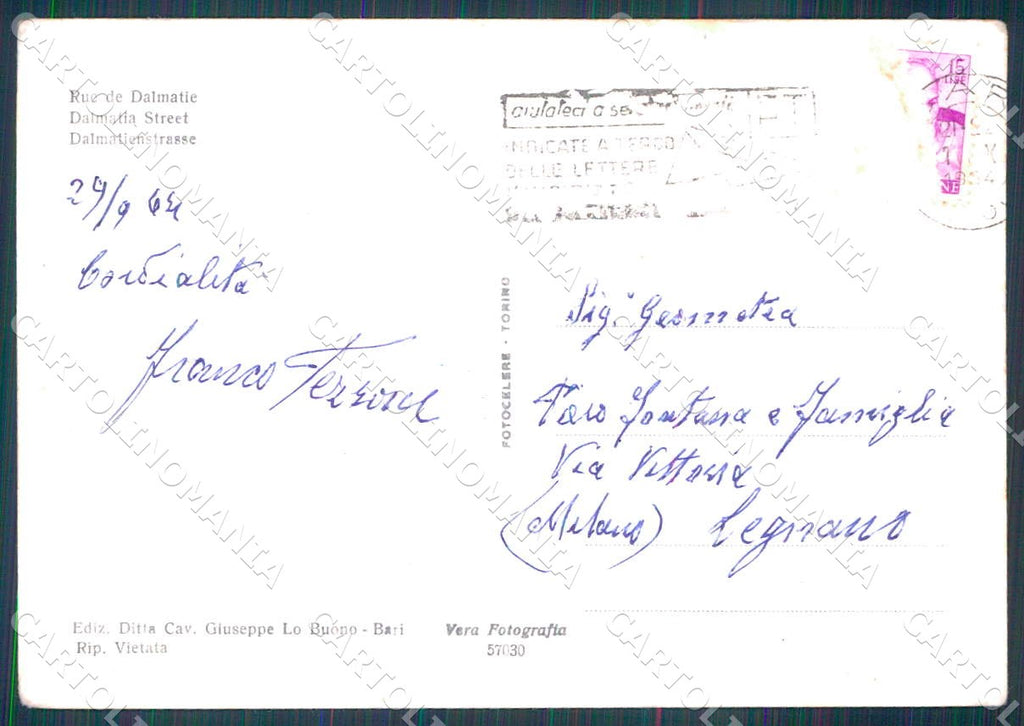 Rue de Dalmatie
Dalmatia Street
Dalmatienstrasse
29/9 64
Cordialità
Franco
aiutateci a
INDICATE A TERGO
DELLE LETTERE
15
LIRE
FOTOCELERE - TORINO
Sig. Geometra
Fontana e Famiglia
Via Vittoria
(Milano) Legnano
Ediz. Ditta Cav. Giuseppe Lo Buono - Bari
Rip. Vietata
Vera Fotografia
57030
CARTOLINOMANIA